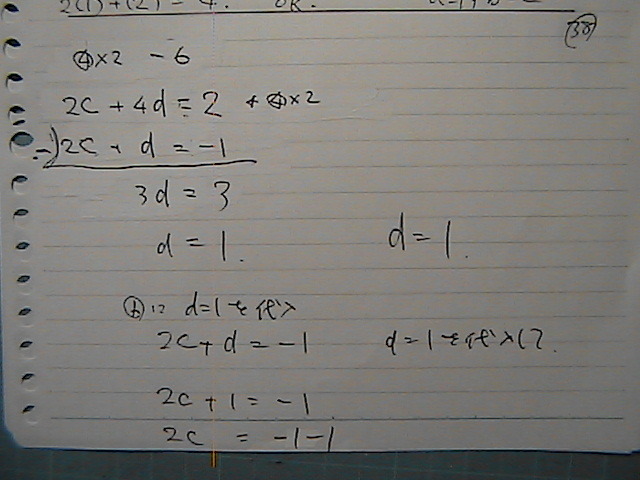 2(1)+(2) = 4. OK.
④×2 - 6
2c + 4d = 2 ④×2
-) 2c + d = -1
3d = 3
d = 1. d = 1.
⑥に d=1を代入
2c + d = -1 d=1を代入して
2c + 1 = -1
2c = -1-1